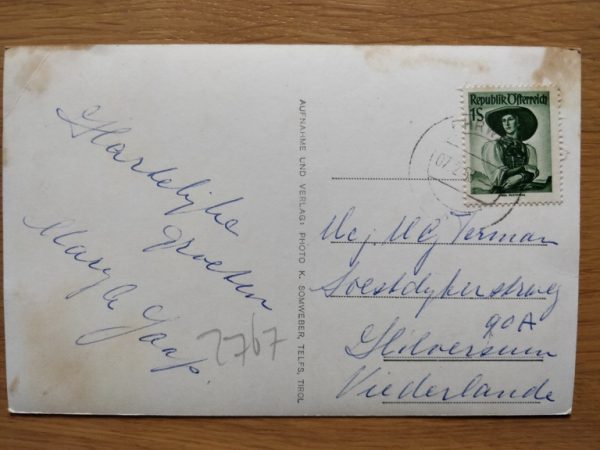 Hartelijke
groeten
Maryle Jaap.
2767
AUFNAHME UND VERLAG: PHOTO K. SOMWEBER, TELFS, TIROL
Republik Österreich
1S
Mej. Terman
Soestdijkerstrweg
90A
Hilversum
Niederlande